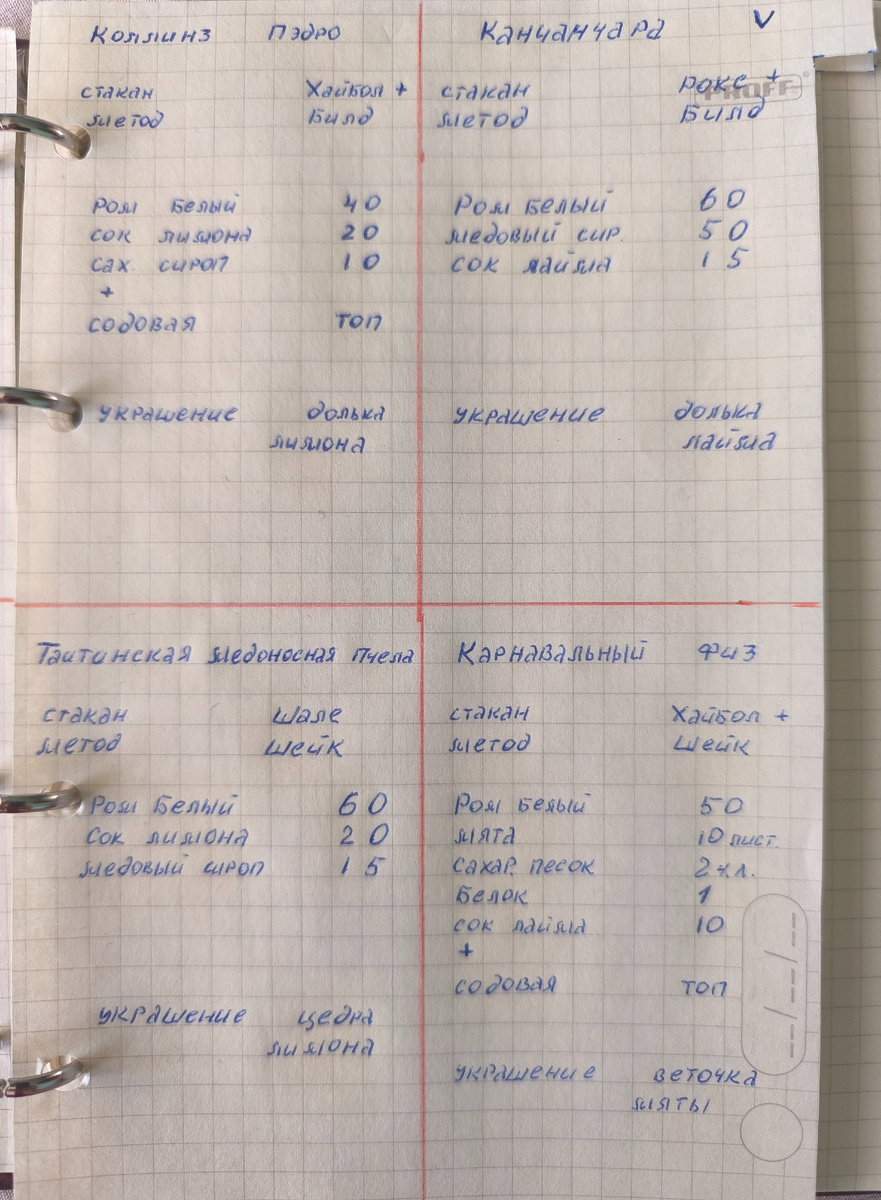 Коллинз Пэдро
стакан Хайбол +
метод Билд
Ром Белый 40
сок лимона 20
сах. сироп 10
+
содовая топ
украшение долька
лимона
Канчанчара V
PROFF
стакан рокс +
метод Билд
Ром Белый 60
медовый сир. 50
сок лайма 15
украшение долька
лайма
Таитинская медоносная пчела
стакан шале
метод шейк
Ром Белый 60
сок лимона 20
медовый сироп 15
украшение цедра
лимона
Карнавальный Физ
стакан Хайбол +
метод шейк
Ром Белый 50
мята 10 лист.
сахар. песок 2 ч.л.
Белок 1
сок лайма 10
+
содовая топ
украшение веточка
мяты
--/--/--